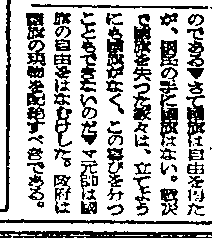 のである▼さて國旗は自由を得た
が、國民の手に國旗はない。戰災
で國旗を失つた家々は、立てよう
にも國旗がなく、この喜びを分つ
こともできないのだ▼マ元帥は國
旗の自由をはなむけした。政府は
國旗の現物を配給すべきである。